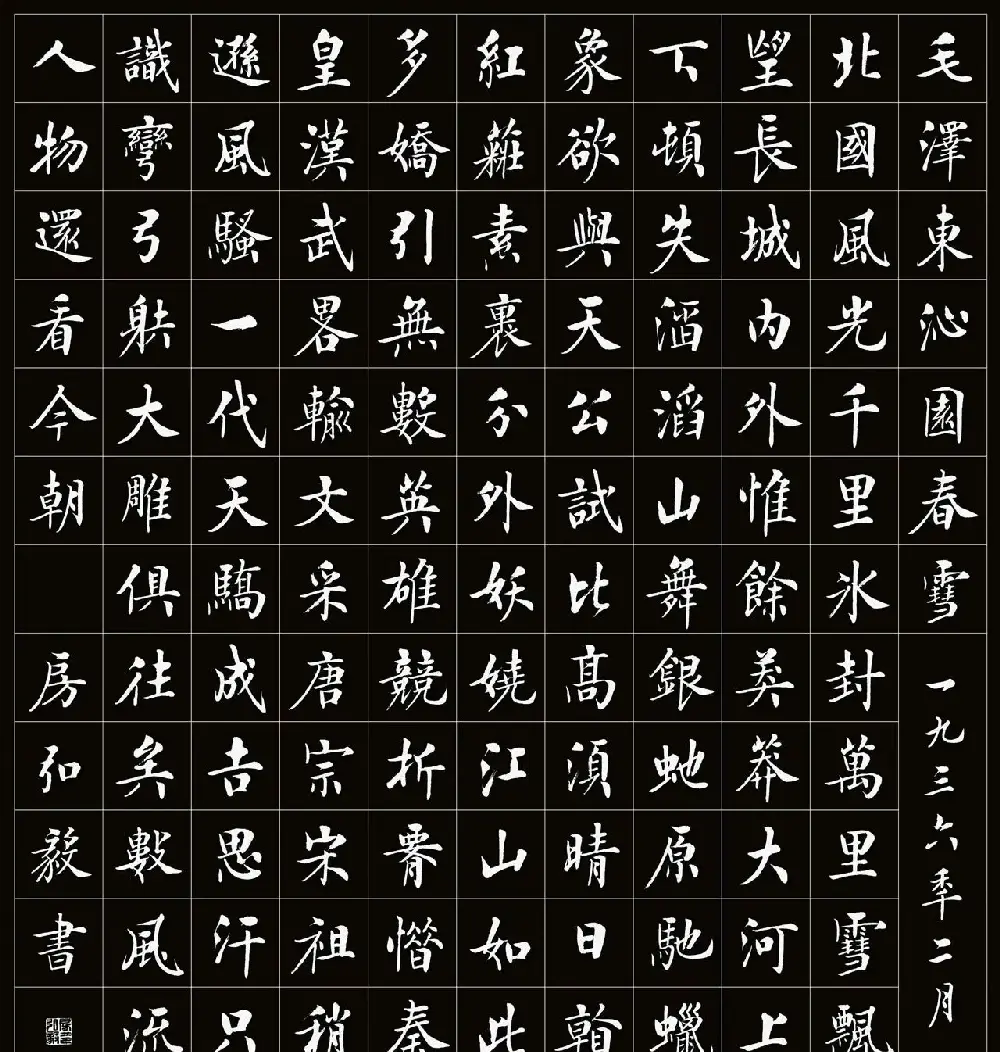 毛澤東沁園春雪
一九三六秊二月
北國風光千里氷封萬里雪飄
望長城內外惟餘莽莽大河上
下頓失滔滔山舞銀蛇原馳蠟
象欲與天公試比高須晴日看
紅裝素裹分外妖嬈江山如此
多嬌引無數英雄競折腰惜秦
皇漢武畧輸文采唐宗宋祖稍
遜風騷一代天驕成吉思汗只
識彎弓射大雕俱往矣數風流
人物還看今朝
房弘毅書